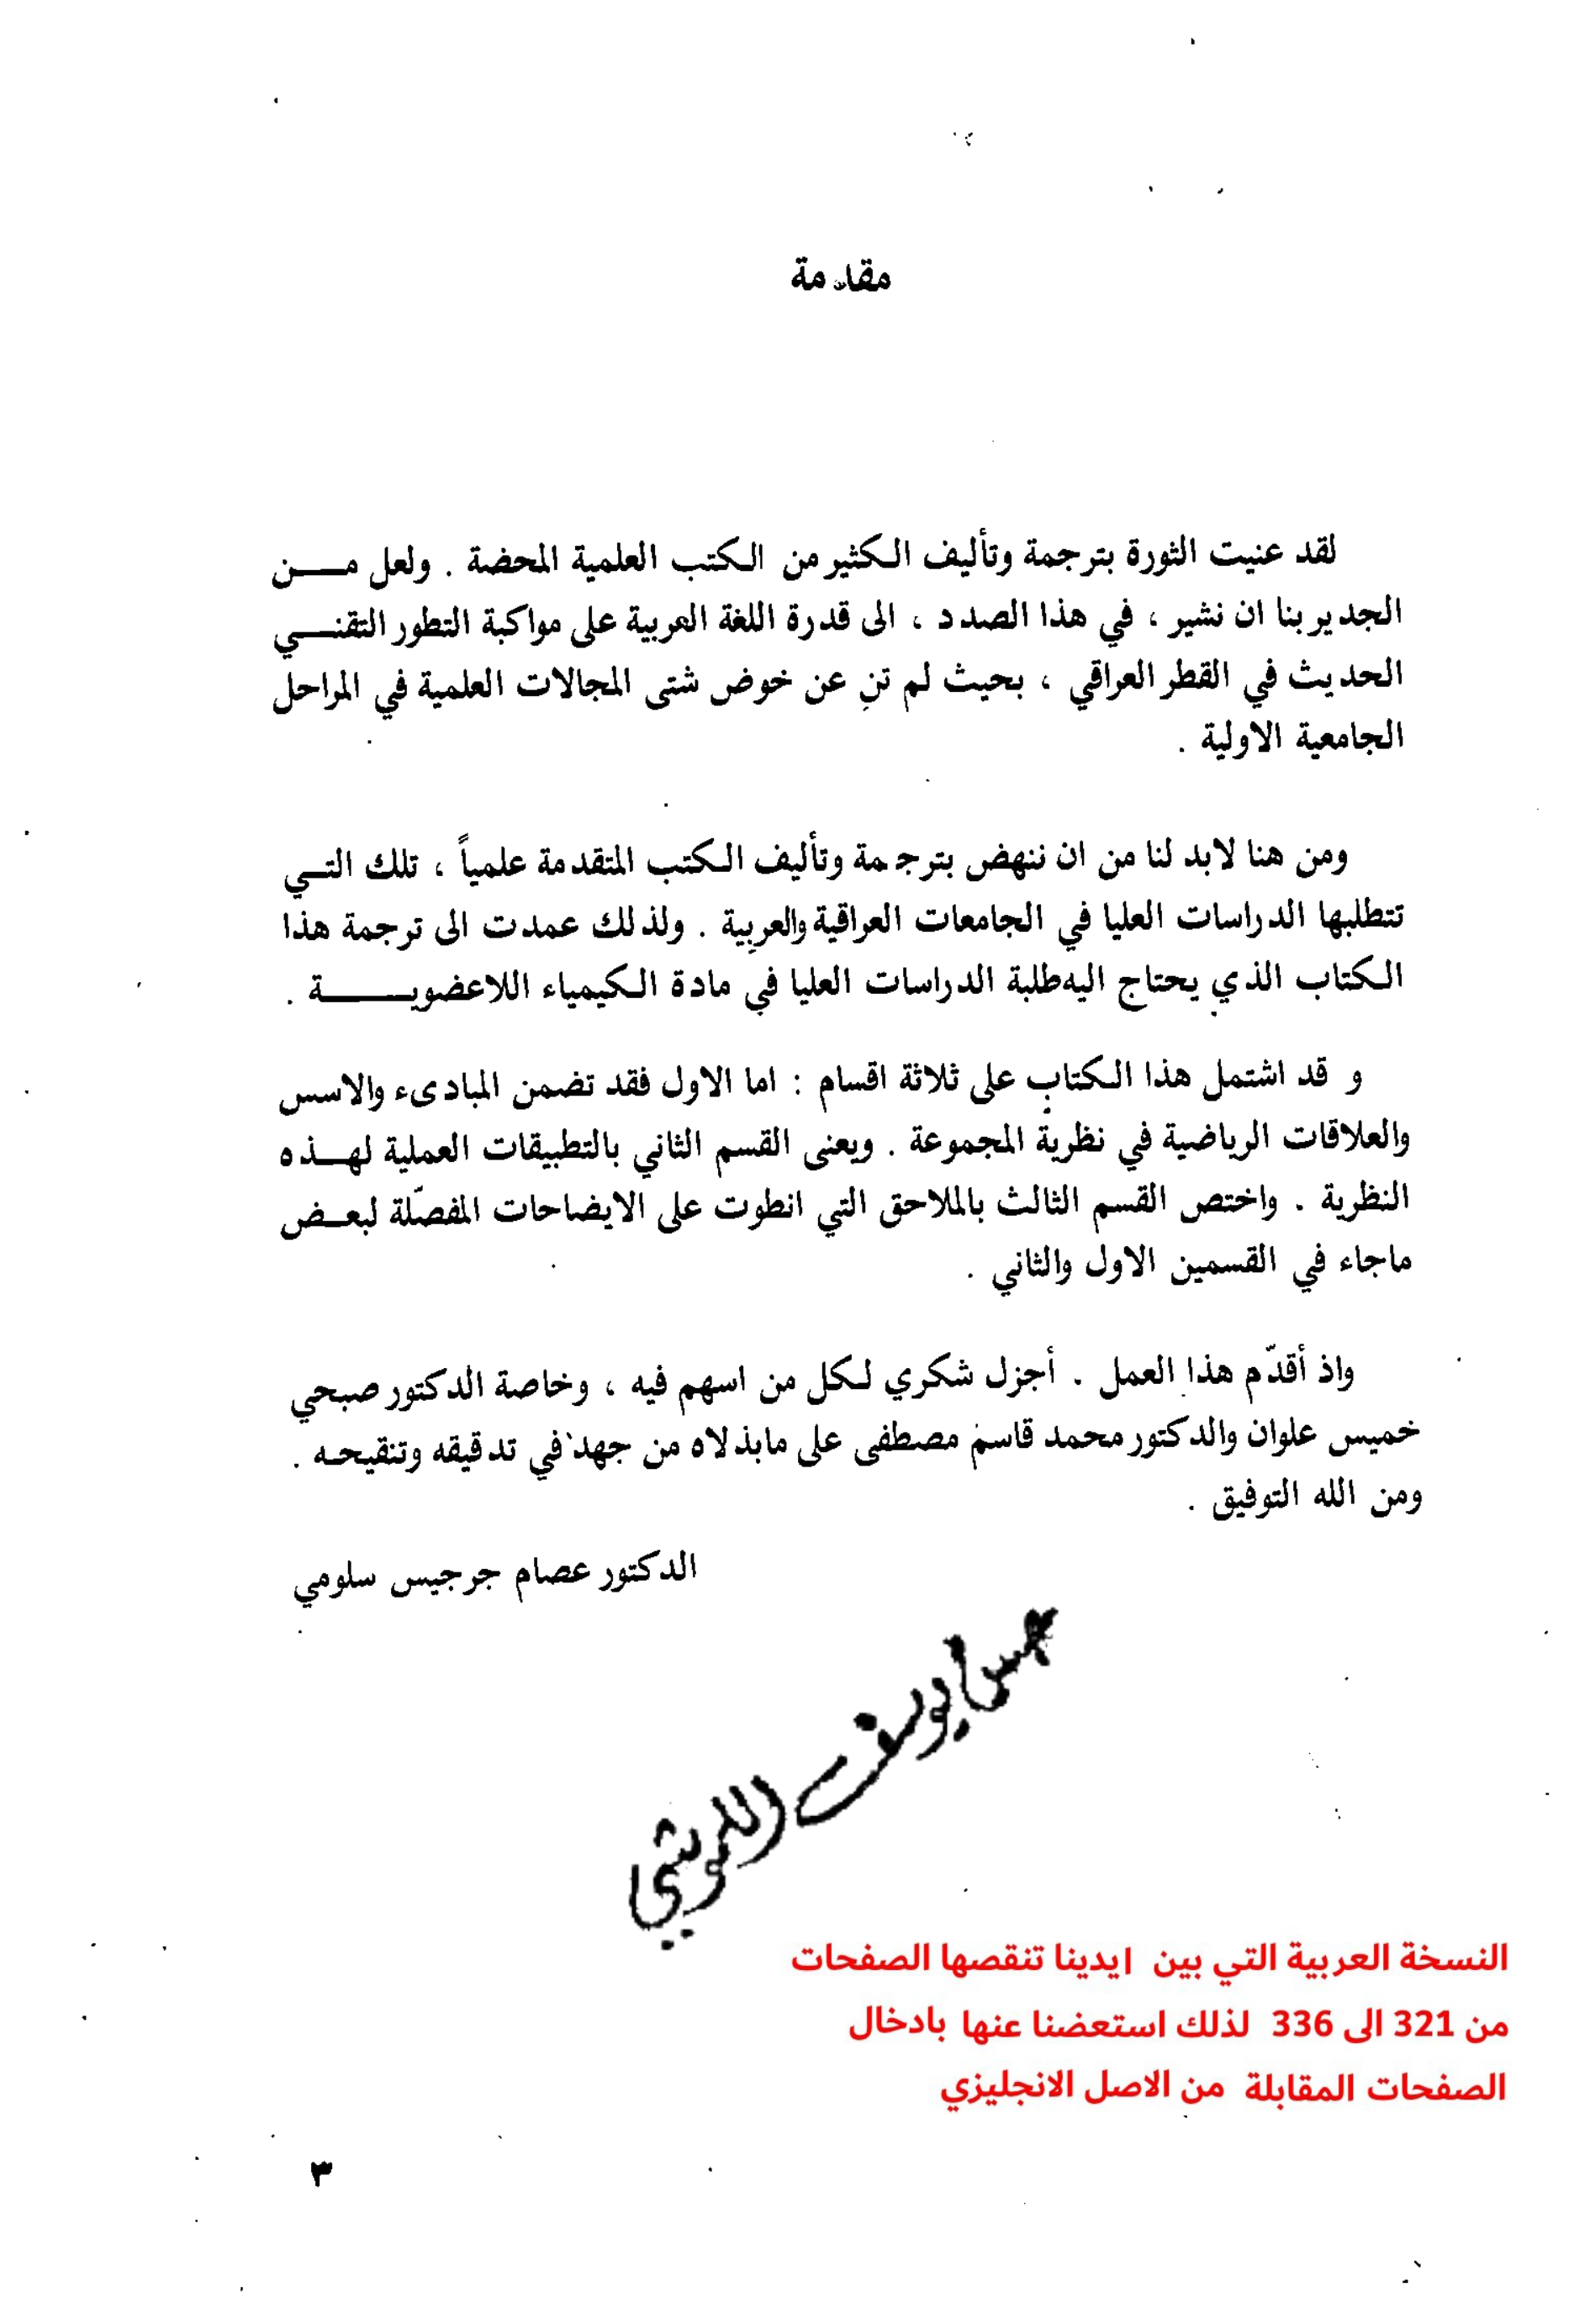 مقدمة
لقد عنيت الثورة بترجمة وتأليف الكثير من الكتب العلمية المحضة . ولعل مـــن
الجدير بنا ان نشير ، في هذا الصدد ، الى قدرة اللغة العربية على مواكبة التطور التقنـــي
الحديث في القطر العراقي ، بحيث لم تنِ عن خوض شتى المجالات العلمية في المراحل
الجامعية الاولية .
ومن هنا لابد لنا من ان ننهض بترجمة وتأليف الكتب المتقدمة علمياً ، تلك التـــي
تتطلبها الدراسات العليا في الجامعات العراقية والعربية . ولذلك عمدت الى ترجمة هذا
الكتاب الذي يحتاج اليه طلبة الدراسات العليا في مادة الكيمياء اللاعضويـــــة .
و قد اشتمل هذا الكتاب على ثلاثة اقسام : اما الاول فقد تضمن المبادىء والاسس
والعلاقات الرياضية في نظرية المجموعة . ويعنى القسم الثاني بالتطبيقات العملية لهـــذه
النظرية . واختص القسم الثالث بالملاحق التي انطوت على الايضاحات المفصّلة لبعــض
ماجاء في القسمين الاول والثاني .
واذ أقدّم هذا العمل . أجزل شكري لكل من اسهم فيه ، وخاصة الدكتور صبحي
خميس علوان والدكتور محمد قاسم مصطفى على مابذلاه من جهد في تدقيقه وتنقيحـه .
ومن الله التوفيق .
الدكتور عصام جرجيس سلومي
يوسف
النسخة العربية التي بين ايدينا تنقصها الصفحات
من 321 الى 336 لذلك استعضنا عنها بادخال
الصفحات المقابلة من الاصل الانجليزي
٣